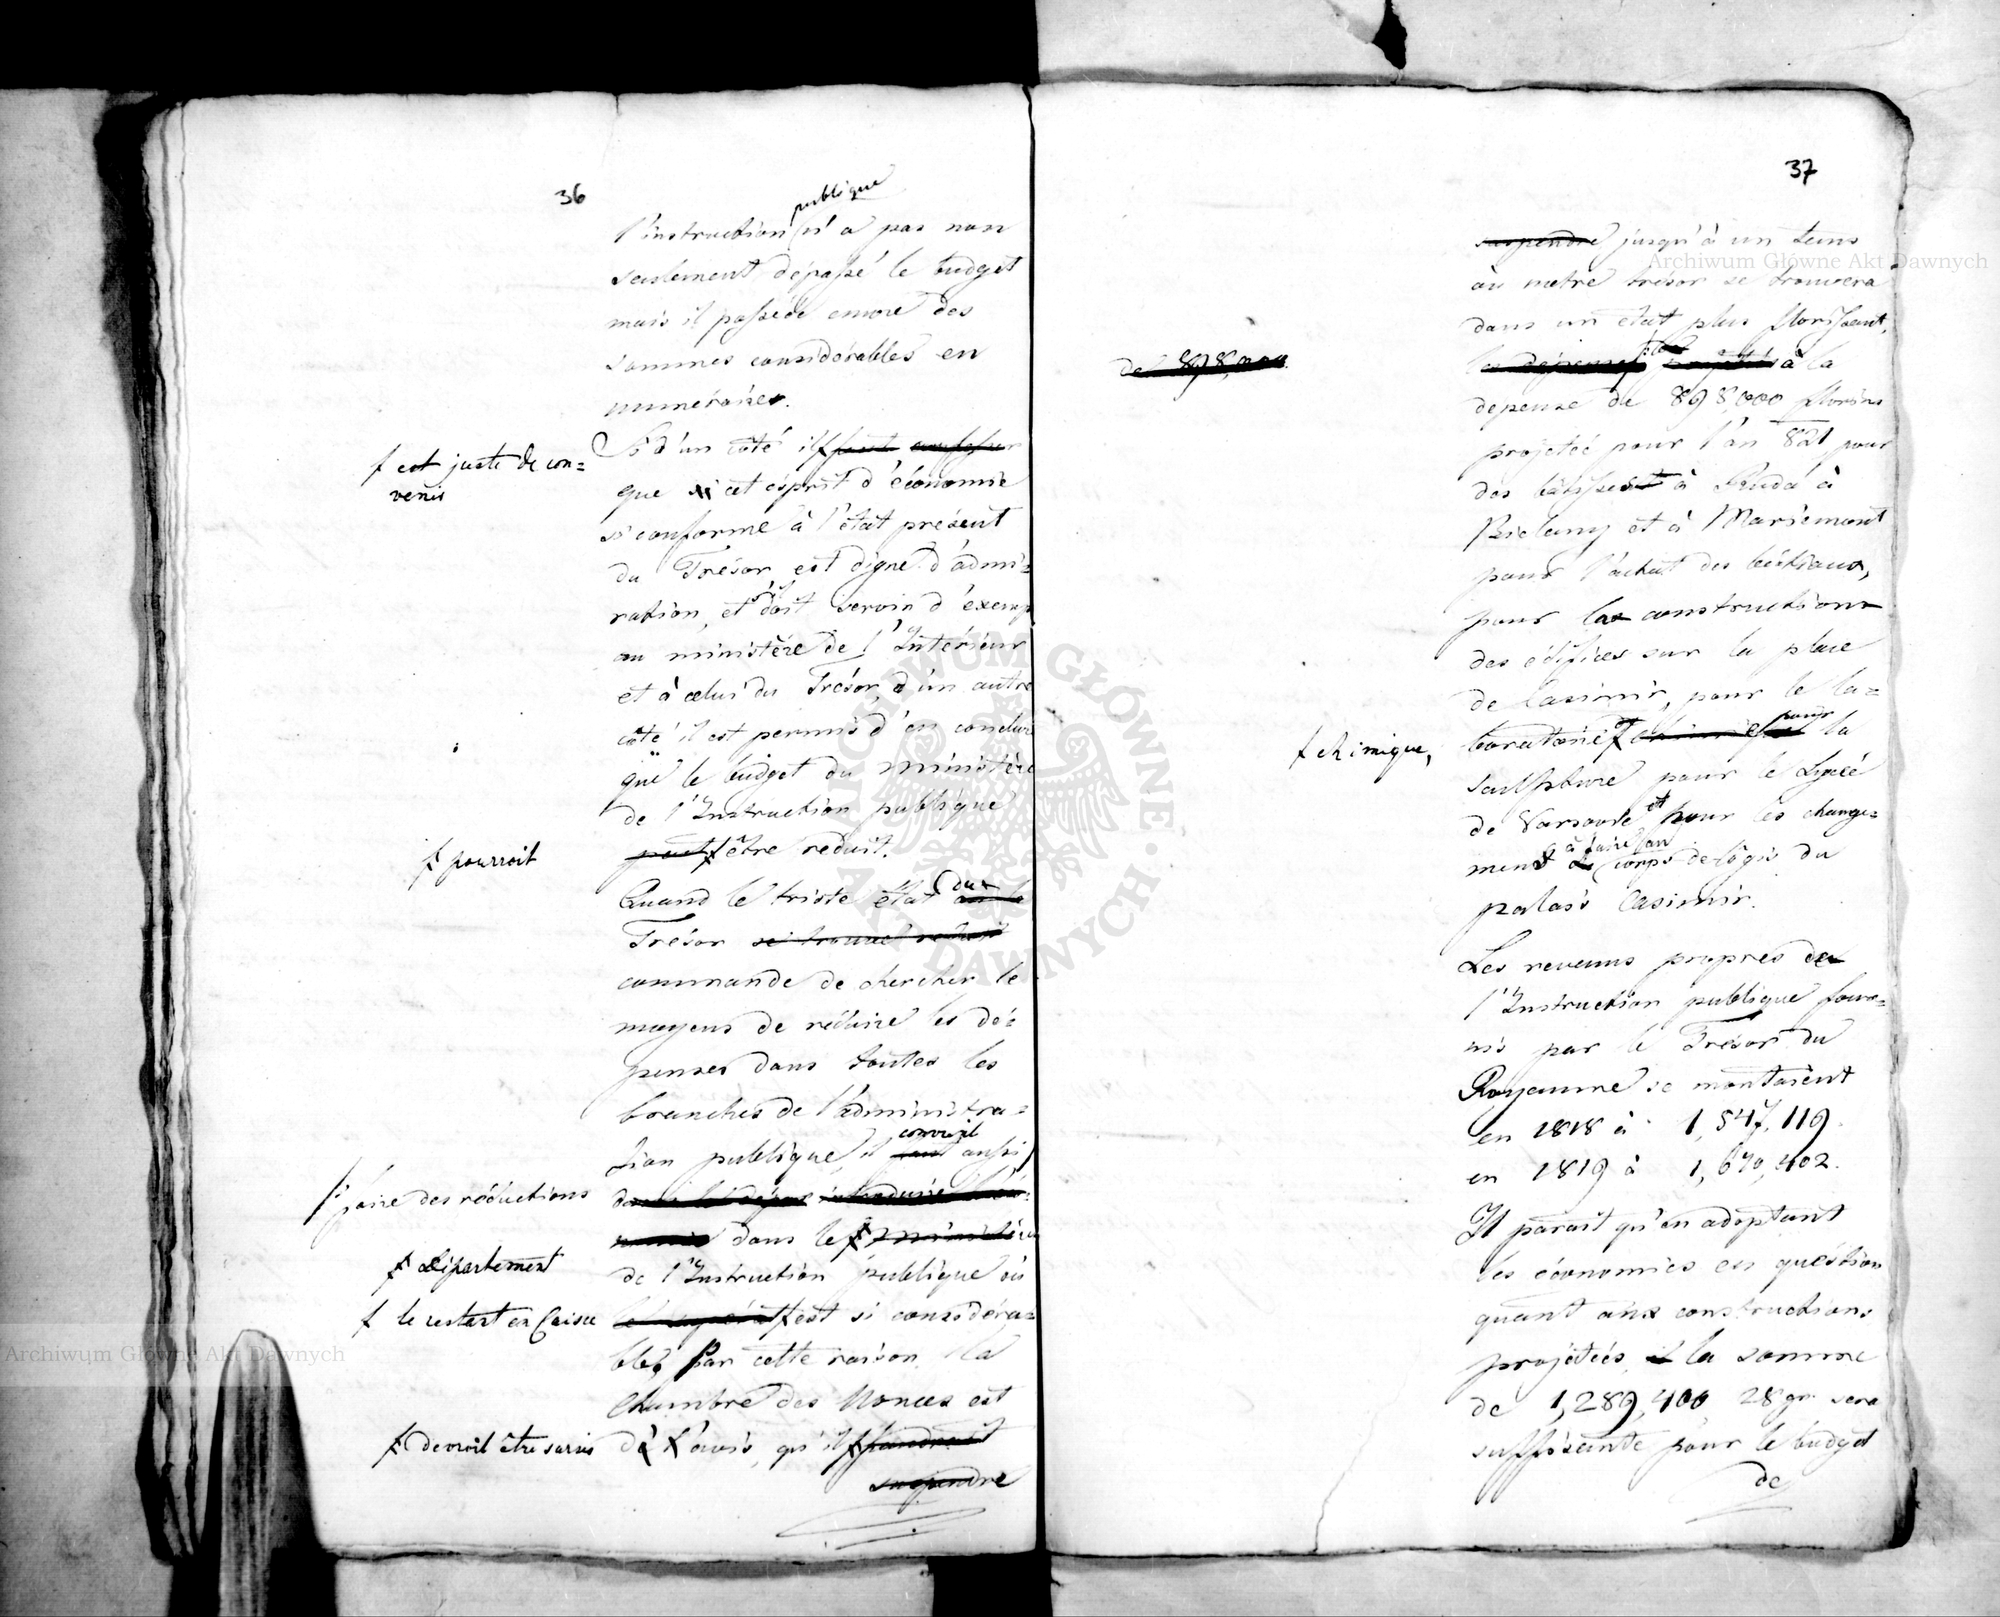 36
publique
l'instruction n'a pas non
seulement dépassé le budget
mais il possède encore des
sommes considérables en
numéraires.
Si d'un côté il faut confesser
ƒ est juste de con=
venir
que si cet esprit d'économie
si conforme à l'état présent
du Trésor, est digne d'admi=
ration, et doit servir d'exemp
au ministère de l'Intérieur
et à celui du Trésor, d'un autre
côté il est permis d'en conclure
que le budget du ministère
de l'Instruction publique
peut ƒ être reduit.
ƒ pourroit
Quand le triste état où le du
Trésor se trouve reduit
commande de chercher le
moyens de réduire les dé=
penses dans toutes les
branches de l'administra=
convient
tion publique, il faut aussi
ƒ faire des réductions
dans le ƒ ministère
ƒ département
de l'Instruction publique où
ƒ le restant en Caisse
ƒ est si considéra=
ble, Par cette raison la
Chambre des Nonces est
de l'avis, qu'il ƒ faudrait
ƒ devroit être sursis
suspendre
37
suspendre jusqu'à un tems
où notre trésor se trouvera
dans un état plus florissant,
les dépenses projettés à la
de 898,000
depense de 898,000 florins
projetée pour l'an 821 pour
des bâtisses à Ruda à
Bielany et à Mariemont
pour l'achat des béstiaux,
pour la construction
des édifices sur la place
de Casimir, pour le la=
boratoire ƒ et pour la
ƒ chimique,
sculpture pour le Lycée
de Varsovie et pour les change=
mens à faire au corps de logis du
palais Casimir.
Les revenus propres de
l'Instruction publique four=
nis par le Trésor du
Royaume se montaient
en 1818 à 1,547,119.
en 1819 à 1,670,402.
Il parait qu'en adoptant
les économies en question
quant aux constructions
projetées, la somme
de 1,289,400 28 gr. sera
suffisante pour le budget
de
Archiwum Główne Akt Dawnych
Archiwum Główne Akt Dawnych
ARCHIWUM GŁÓWNE AKT DAWNYCH